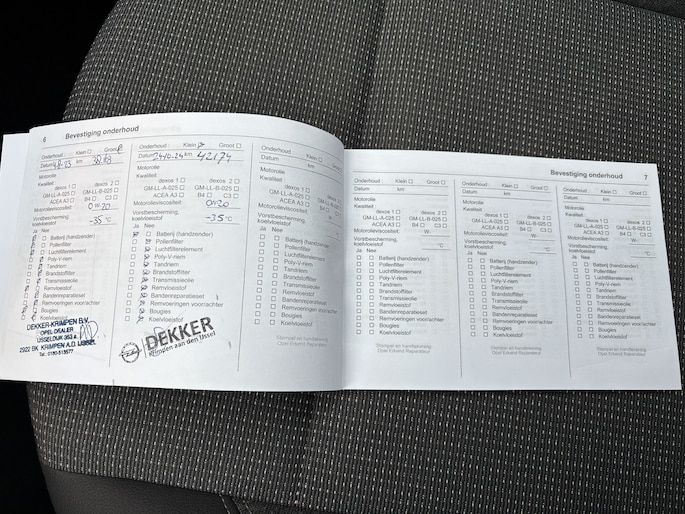 6 Bevestiging onderhoud
Onderhoud : Klein Groot
Datum km
Motorolie
Kwaliteit:
dexos 1 dexos 2
GM-LL-A-025 GM-LL-B-025
ACEA A3 B4 C3
Motorolieviscositeit: 0W20
Vorstbescherming,
koelvloeistof -35 °C
Ja Nee
Batterij (handzender)
Pollenfilter
Luchtfilterelement
Poly-V-riem
Tandriem
Brandstoffilter
Transmissieolie
Remvloeistof
Bandenreparatieset
Remvoeringen voor/achter
Bougies
Koelvloeistof
DEKKER-KRIMPEN B.V.
OPEL DEALER
IJSSELDIJK 353 A
2922 BK KRIMPEN A.D. IJSSEL
Onderhoud : Klein Groot
Datum 24-10-24 km 42174
Motorolie
Kwaliteit:
dexos 1 dexos 2
GM-LL-A-025 GM-LL-B-025
ACEA A3 B4 C3
Motorolieviscositeit: 0W20
Vorstbescherming,
koelvloeistof -35 °C
Ja Nee
Batterij (handzender)
Pollenfilter
Luchtfilterelement
Poly-V-riem
Tandriem
Brandstoffilter
Transmissieolie
Remvloeistof
Bandenreparatieset
Remvoeringen voor/achter
Bougies
Koelvloeistof
DEKKER
Krimpen aan den IJssel
Onderhoud : Klein Groot
Datum km
Motorolie
Kwaliteit:
dexos 1 dexos 2
GM-LL-A-025 GM-LL-B-025
ACEA A3 B4 C3
Motorolieviscositeit:
Vorstbescherming,
koelvloeistof
Ja Nee
Batterij (handzender)
Pollenfilter
Luchtfilterelement
Poly-V-riem
Tandriem
Brandstoffilter
Transmissieolie
Remvloeistof
Bandenreparatieset
Remvoeringen voor/achter
Bougies
Koelvloeistof
Stempel en handtekening
Opel Erkend Reparateur
Bevestiging onderhoud 7
Onderhoud : Klein Groot
Datum km
Motorolie
Kwaliteit:
dexos 1 dexos 2
GM-LL-A-025 GM-LL-B-025
ACEA A3 B4 C3
Motorolieviscositeit: W-
Vorstbescherming,
koelvloeistof °C
Ja Nee
Batterij (handzender)
Pollenfilter
Luchtfilterelement
Poly-V-riem
Tandriem
Brandstoffilter
Transmissieolie
Remvloeistof
Bandenreparatieset
Remvoeringen voor/achter
Bougies
Koelvloeistof
Stempel en handtekening
Opel Erkend Reparateur
Onderhoud : Klein Groot
Datum km
Motorolie
Kwaliteit:
dexos 1 dexos 2
GM-LL-A-025 GM-LL-B-025
ACEA A3 B4 C3
Motorolieviscositeit: W-
Vorstbescherming,
koelvloeistof °C
Ja Nee
Batterij (handzender)
Pollenfilter
Luchtfilterelement
Poly-V-riem
Tandriem
Brandstoffilter
Transmissieolie
Remvloeistof
Bandenreparatieset
Remvoeringen voor/achter
Bougies
Koelvloeistof
Stempel en handtekening
Opel Erkend Reparateur
Onderhoud : Klein Groot
Datum km
Motorolie
Kwaliteit:
dexos 1 dexos 2
GM-LL-A-025 GM-LL-B-025
ACEA A3 B4 C3
Motorolieviscositeit: W-
Vorstbescherming,
koelvloeistof °C
Ja Nee
Batterij (handzender)
Pollenfilter
Luchtfilterelement
Poly-V-riem
Tandriem
Brandstoffilter
Transmissieolie
Remvloeistof
Bandenreparatieset
Remvoeringen voor/achter
Bougies
Koelvloeistof
Stempel en handtekening
Opel Erkend Reparateur